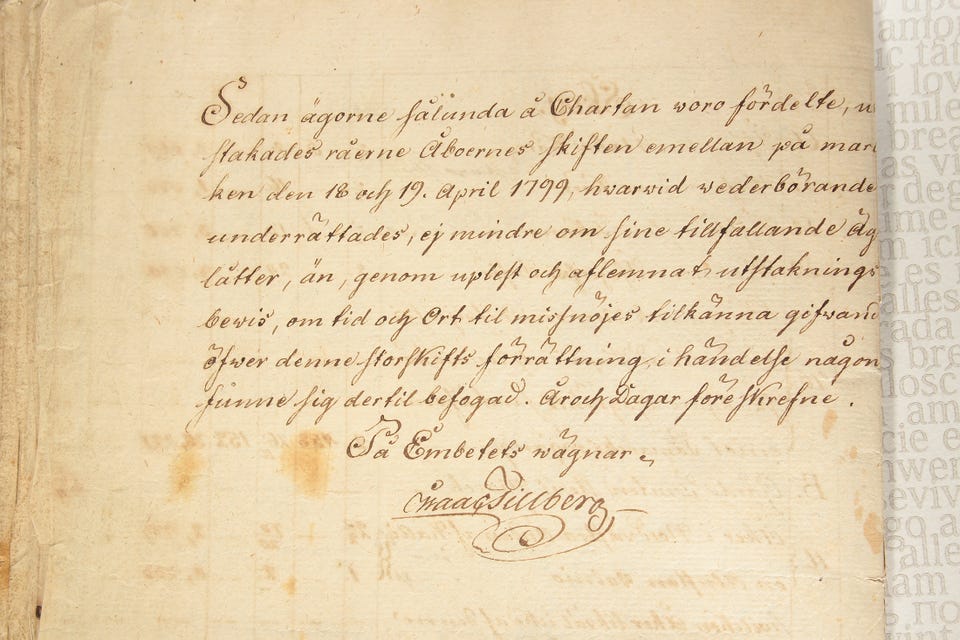 Sedan ägorne sålunda å Chartan woro fördelte, u
stakades råerne Åboernes skiften emellan på mar
ken den 18 och 19. April 1799, hwarwid wederbörande
underrättades, ej mindre om sine tillfallande Äg
låtter, än, genom uplest och aflemnat utstaknings
bewis, om tid och Ort til missnöjes tilkänna gifwand
öfwer denne storskifts förrättning, i händelse någon
funne sig dertil befogad. År och Dagar föreskrefne.
På Embetets wägnar
Isaac Tillberg